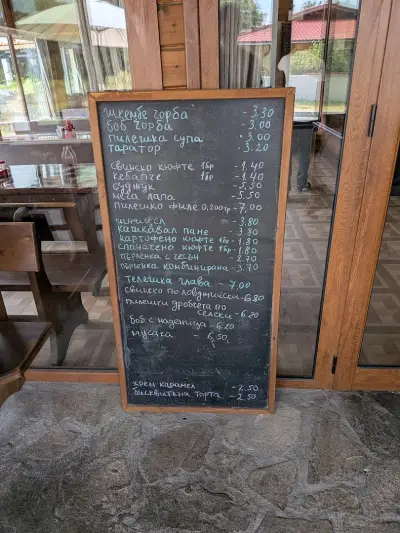 шкембе чорба - 3.30
боб чорба - 3.00
пилешка супа - 3.00
таратор - 3.20
свинско кюфте 1бр - 1.40
кебапче 1бр - 1.40
суджук - 5.50
меча лапа - 5.50
пилешко филе 0,200гр - 7,00
- 3.80
кашкавал пане - 3.80
картофено кюфте 1бр - 1.80
спаначено кюфте 1бр - 1.80
пърленка с чесън - 2.70
пърленка комбинирана - 3.70
телешка глава - 7,00
свинско по ловджийски - 6.80
пилешки дробчета по
селски - 6.20
боб с наденица - 6.20
мусака - 6,50
крем карамел - 2.50
бисквитена торта - 2.50